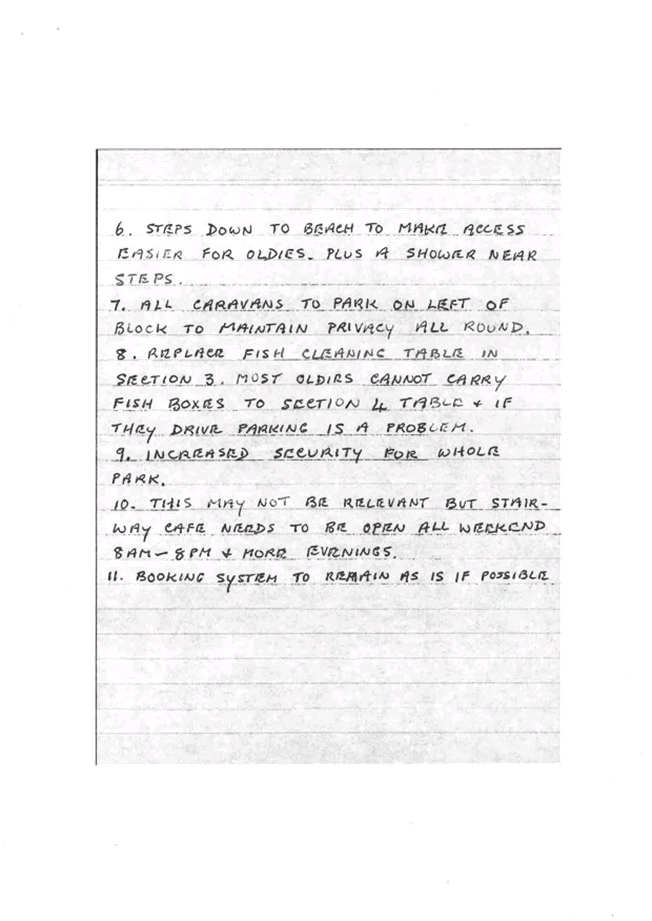 6. STEPS DOWN TO BEACH TO MAKE ACCESS
EASIER FOR OLDIES. PLUS A SHOWER NEAR
STEPS.
7. ALL CARAVANS TO PARK ON LEFT OF
BLOCK TO MAINTAIN PRIVACY ALL ROUND.
8. REPLACE FISH CLEANING TABLE IN
SECTION 3. MOST OLDIES CANNOT CARRY
FISH BOXES TO SECTION 4 TABLE & IF
THEY DRIVE PARKING IS A PROBLEM.
9. INCREASED SECURITY FOR WHOLE
PARK.
10. THIS MAY NOT BE RELEVANT BUT STAIR-
WAY CAFE NEEDS TO BE OPEN ALL WEEKEND
8AM-8PM & MORE EVENINGS.
11. BOOKING SYSTEM TO REMAIN AS IS IF POSSIBLE